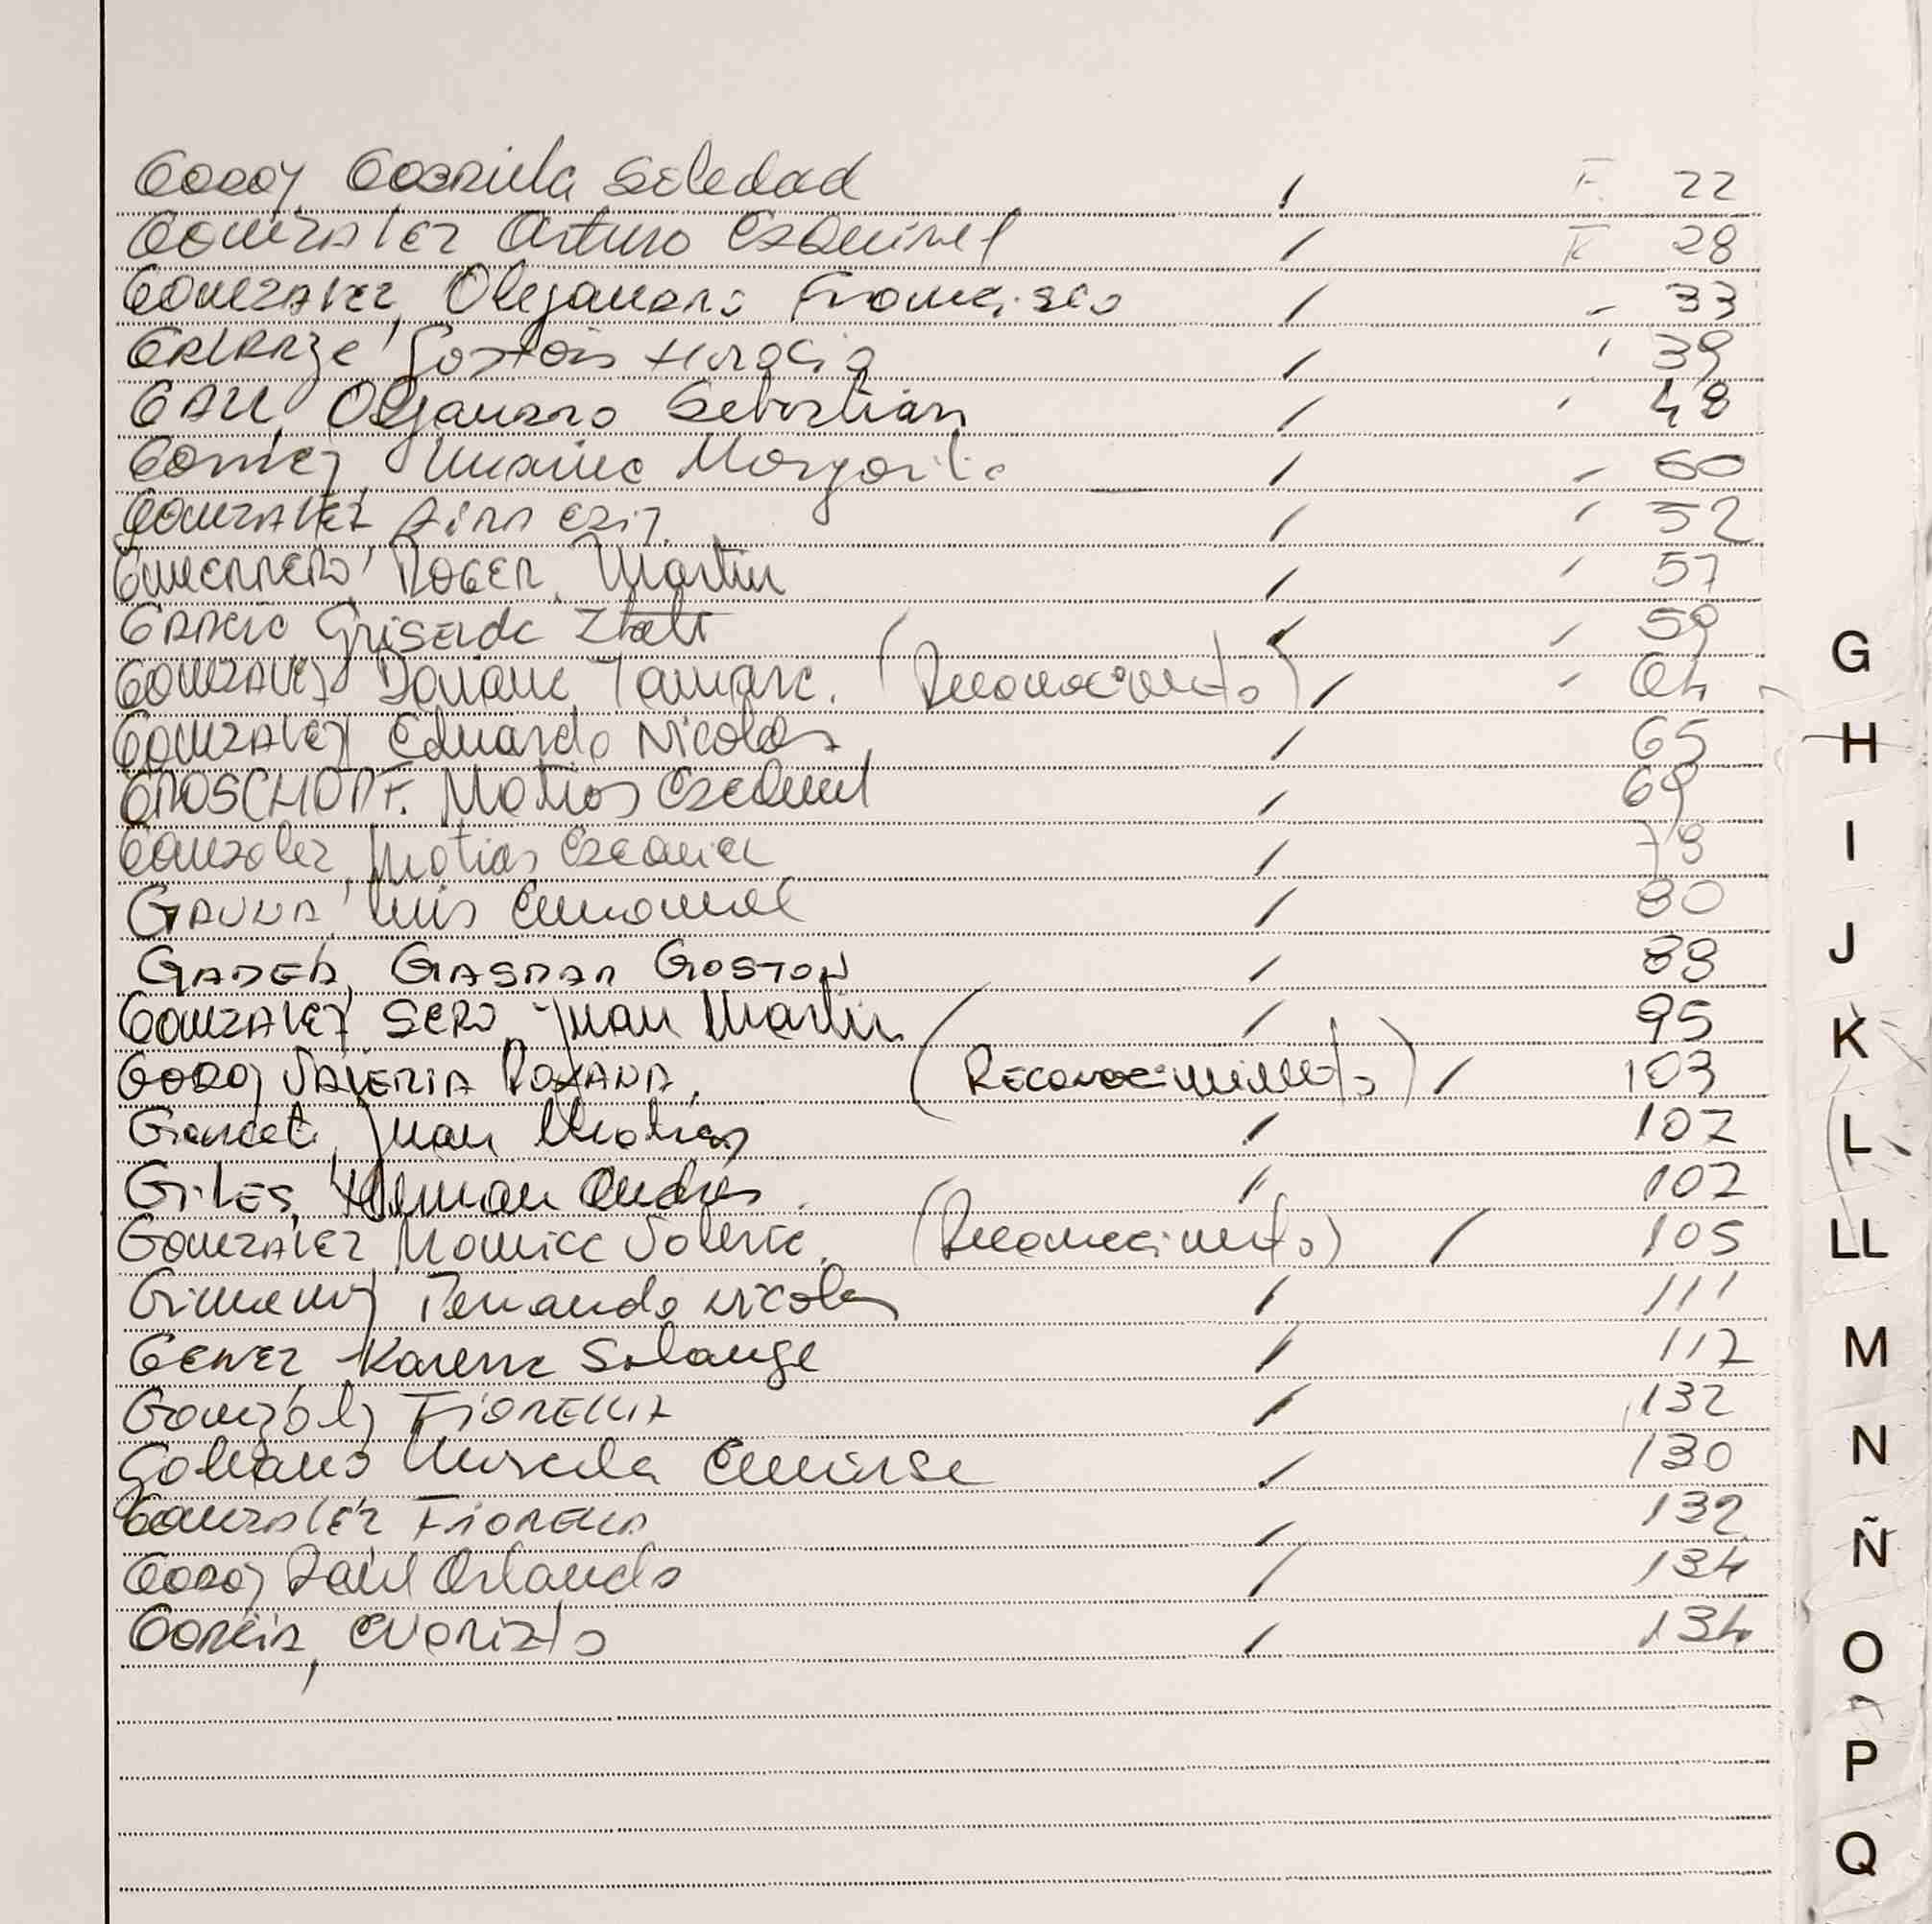 Godoy, Gabriela Soledad / F. 22
Gonzalez Arturo Ezequiel / F 28
Gonzalez, Alejandro Francisco / - 33
Gastón Horacio / ' 39
Gau, Alejandro Sebastián / ' 48
Gomez, Margarita / - 60
Gonzalez / ' 52
Guerrero, Roger Martin / ' 57
Garcia Griselda / - 59
Gonzalez Daiana Tamara. (Reconocimiento) / - 64
Gonzalez Eduardo Nicolas / 65
GROSCHOPF. Matias Ezequiel / 69
Gonzalez, Matias Ezequiel / 79
GAUNA, Luis Emmanuel / 80
GASPAR GASTON / 89
GONZALEZ SERO, Juan Martin / 95
Godoy VALERIA ROXANA. (Reconocimiento) / 103
Juan Matias / 107
GILES, Herman Andres. / 107
Gonzalez Valeria. (Reconocimiento) / 105
Gimenez Fernando Nicolas / 111
Karena Solange / 117
González FIORELLA / 132
Galeano / 130
Gonzalez FIORELLA / 132
Godoy Raúl Orlando / 134
Garcia, Evaristo / 134
G
H
I
J
K
L
LL
M
N
Ñ
O
P
Q